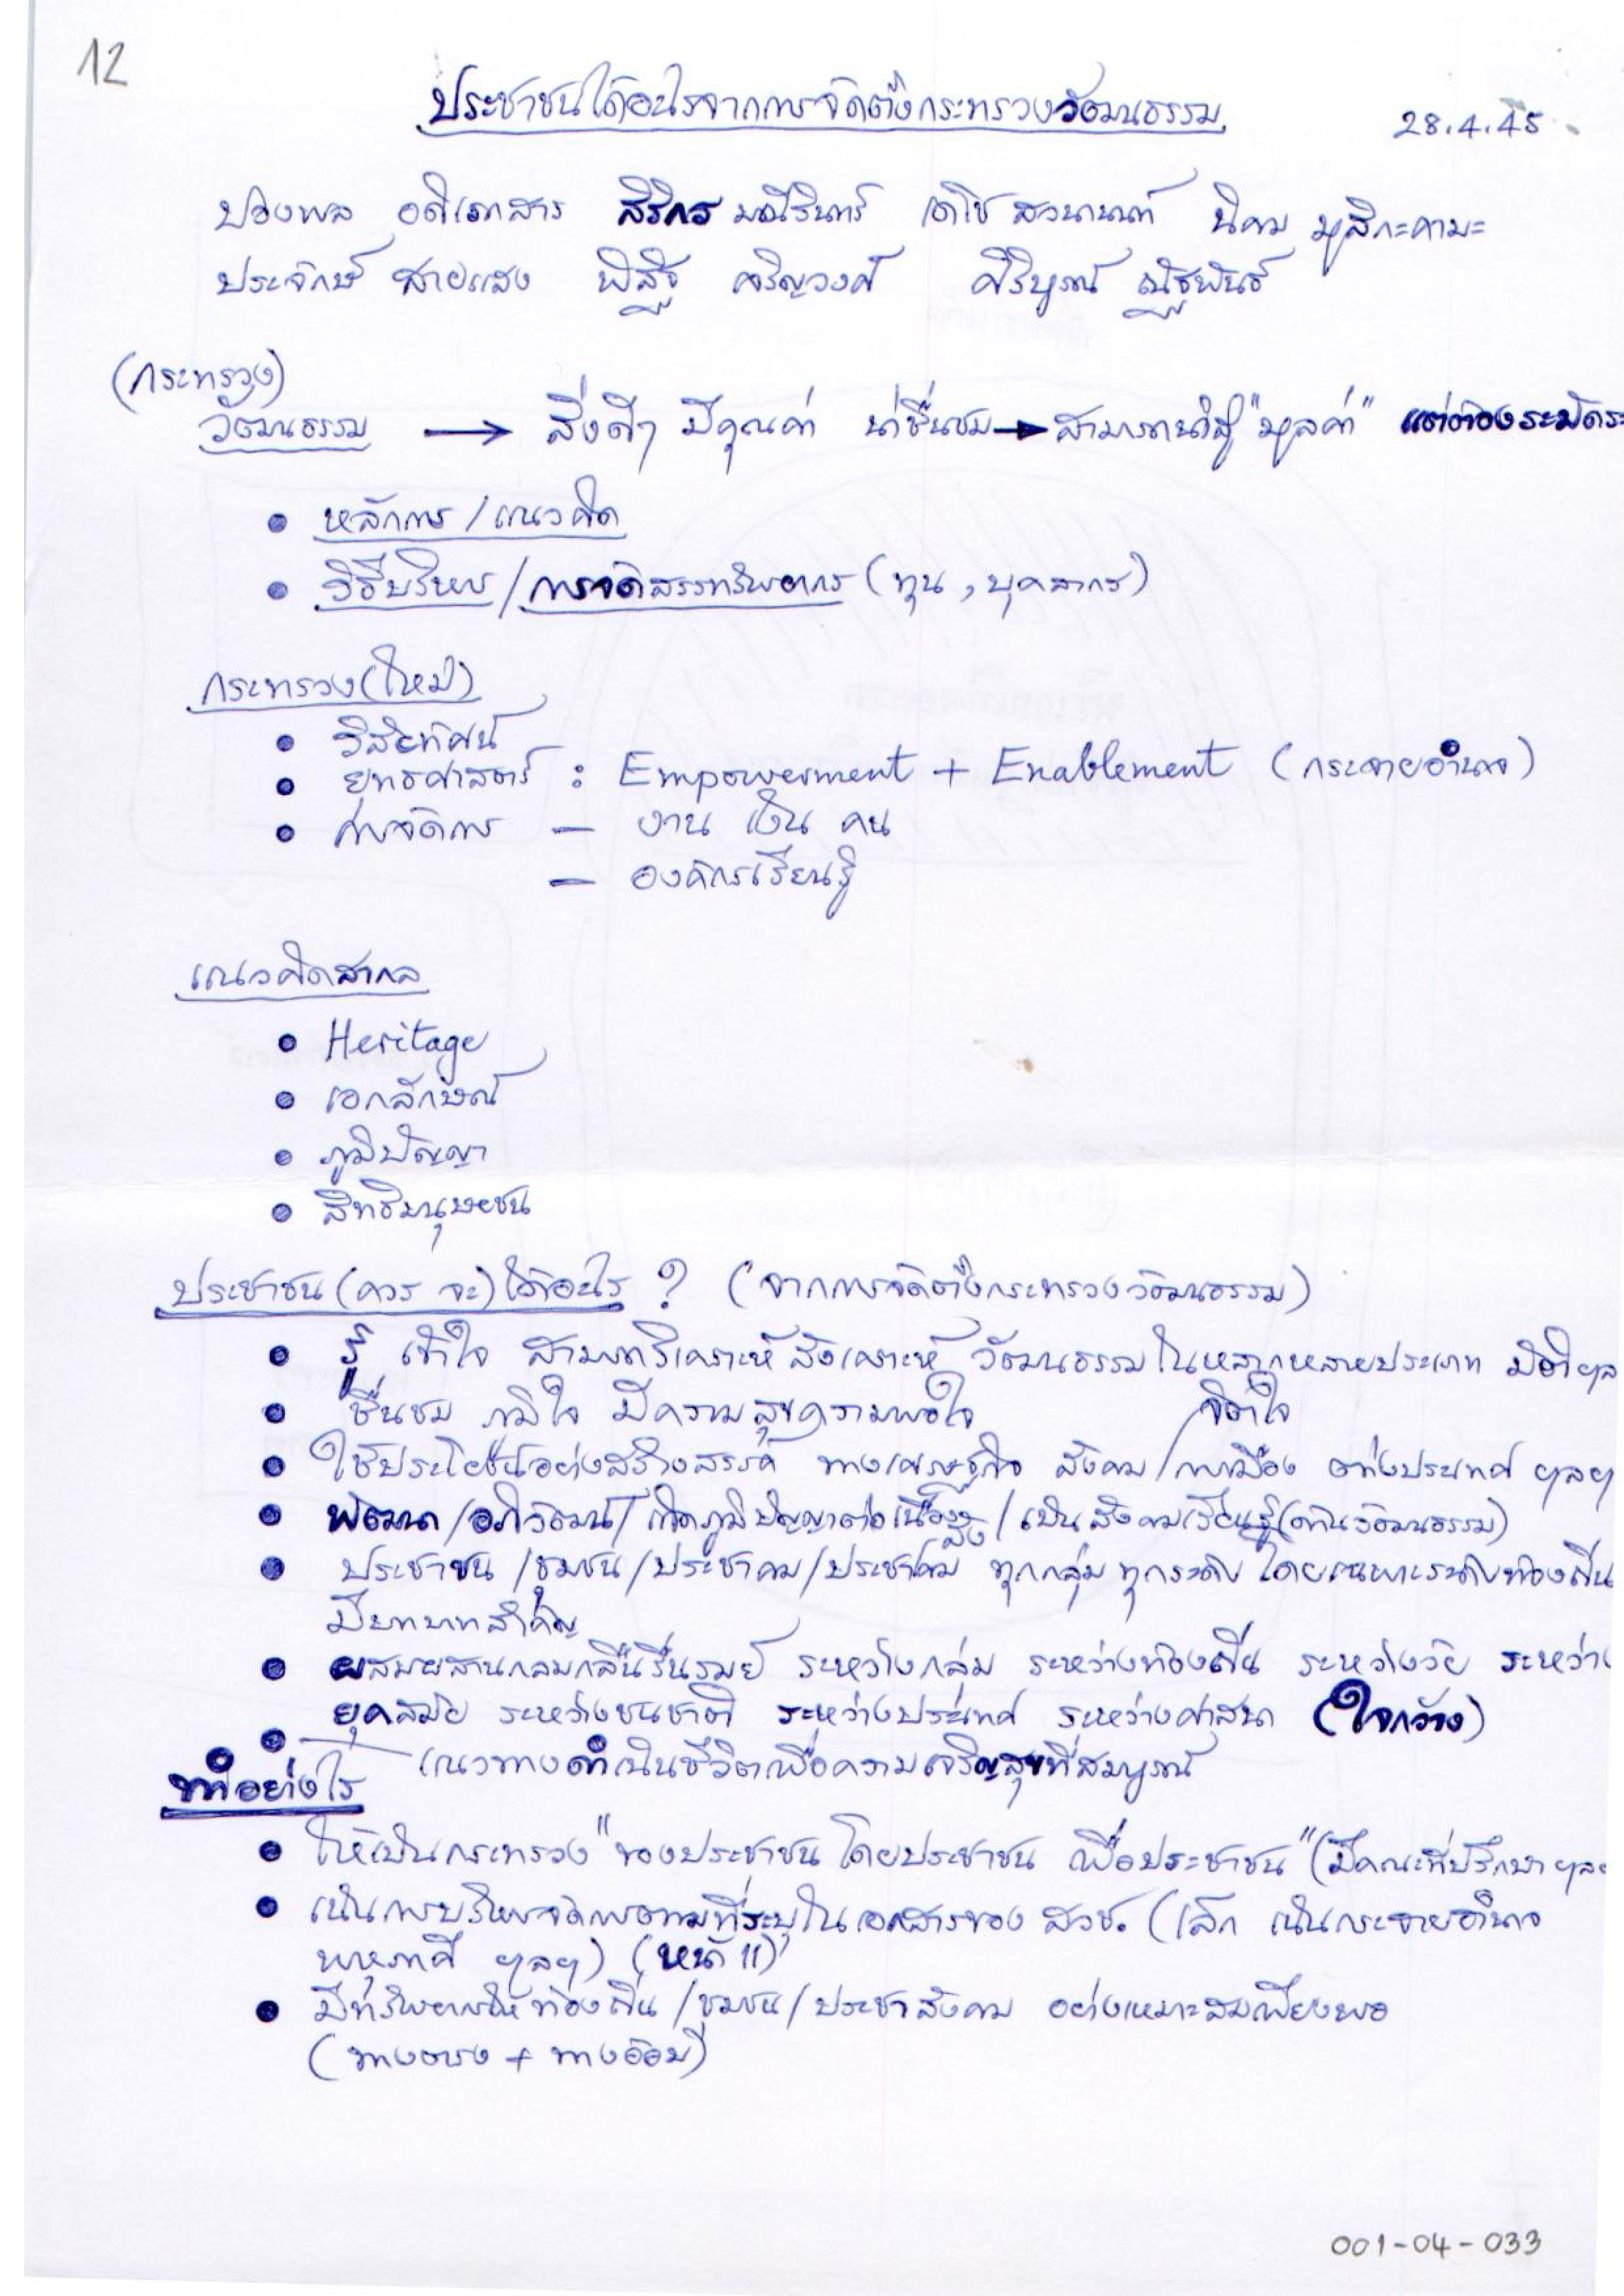 12
ประชาชนได้อะไรจากการจัดตั้งกระทรวงวัฒนธรรม
28.4.45
ปองพล อดิเรกสาร สิริกร มณีรินทร์ เดโช สวนานนท์ นิคม มูสิกะคามะ
ประจักษ์ สายแสง พิสิฐ เจริญวงศ์ ศิริบูรณ์ ณัฐพันธ์
(กระทรวง)
วัฒนธรรม → สิ่งดีๆ มีคุณค่า น่าชื่นชม → สามารถนำสู่ "มูลค่า" แต่ต้องระมัดระ
• หลักการ / แนวคิด
• วิธีบริหาร / การจัดสรรทรัพยากร (ทุน, บุคลากร)
กระทรวง (ใหม่)
• วิสัยทัศน์
• ยุทธศาสตร์ : Empowerment + Enablement (กระจายอำนาจ)
• การจัดการ – งาน เงิน คน
– องค์กรเรียนรู้
แนวคิดสากล
• Heritage
• เอกลักษณ์
• ภูมิปัญญา
• สิทธิมนุษยชน
ประชาชน (ควร จะ) ได้อะไร ? (จากการจัดตั้งกระทรวงวัฒนธรรม)
• รู้ เข้าใจ สามารถวิเคราะห์ สังเคราะห์ วัฒนธรรมในหลากหลายประเภท มิติ ฯล
• ชื่นชม ภูมิใจ มีความสุขความพอใจ จิตใจ
• ใช้ประโยชน์อย่างสร้างสรรค์ ทางเศรษฐกิจ สังคม / การเมือง ต่างประเทศ ฯลฯ
• พัฒนา / อภิวัฒน์ / เกิดภูมิปัญญาต่อเนื่อง / เป็นสังคมเรียนรู้ (ด้านวัฒนธรรม)
• ประชาชน / ชุมชน / ประชาคม / ประชาสังคม ทุกกลุ่ม ทุกระดับ โดยเฉพาะระดับท้องถิ่น
มีบทบาทสำคัญ
• ผสมผสานกลมกลืนรื่นรมย์ ระหว่างกลุ่ม ระหว่างท้องถิ่น ระหว่างวัย ระหว่าง
ยุคสมัย ระหว่างชนชาติ ระหว่างประเทศ ระหว่างศาสนา (ใจกว้าง)
• แนวทางดำเนินชีวิตเพื่อความเจริญสุขที่สมบูรณ์
ทำอย่างไร
• ให้เป็นกระทรวง "ของประชาชน โดยประชาชน เพื่อประชาชน" (มีคณะที่ปรึกษา ฯลฯ
• เน้นการบริหารจัดการตามที่ระบุในเอกสารของ สวช. (เล็ก เน้นกระจายอำนาจ
พหุภาคี ฯลฯ) (หน้า 11)
• มีทรัพยากรให้ท้องถิ่น / ชุมชน / ประชาสังคม อย่างเหมาะสมเพียงพอ
(ทางตรง + ทางอ้อม)
001-04-033